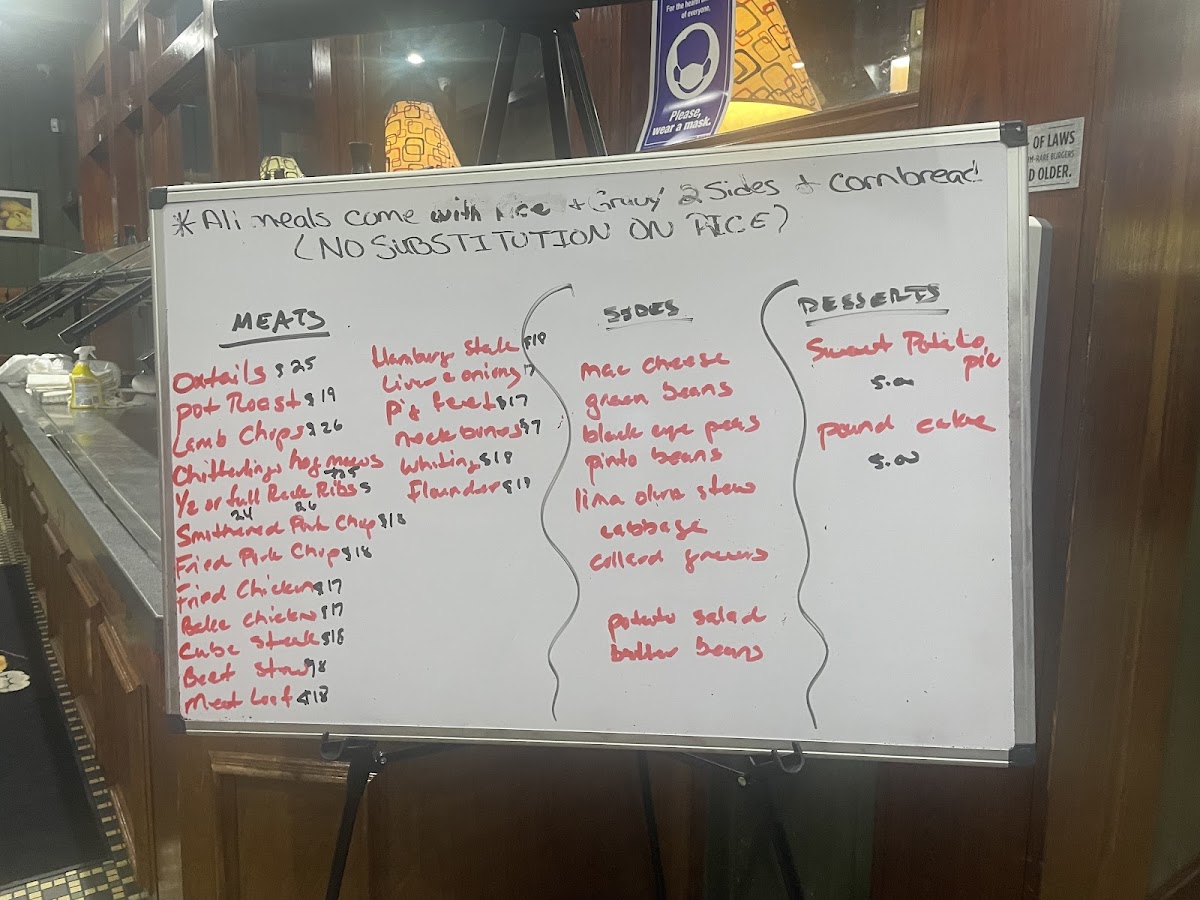 For the health
of everyone.
Please,
wear a mask.
OF LAWS
M-RARE BURGERS
D OLDER.
* All meals come with rice + Gravy 2 Sides + Cornbread
(NO SUBSTITUTION ON RICE)
MEATS
Oxtails $25
Pot Roast $19
Lamb Chops $26
Chitterlings hog maws
+25
1/2 or full Rack Ribs
24 26
Smithered Pork Chop $18
Fried Pork Chop $18
Fried Chicken $17
Bake Chicken $17
Cube Steak $18
Beef Stew
Meat loaf $18
Hamburg Steak
Liver & onions
Pig feet $17
Neckbones
Whiting $18
Flounder
SIDES
mac cheese
green beans
black eye peas
pinto beans
lima okra stew
cabbage
collard greens
potato salad
butter beans
DESSERTS
Sweet Potato
pie
5.00
pound cake
5.00